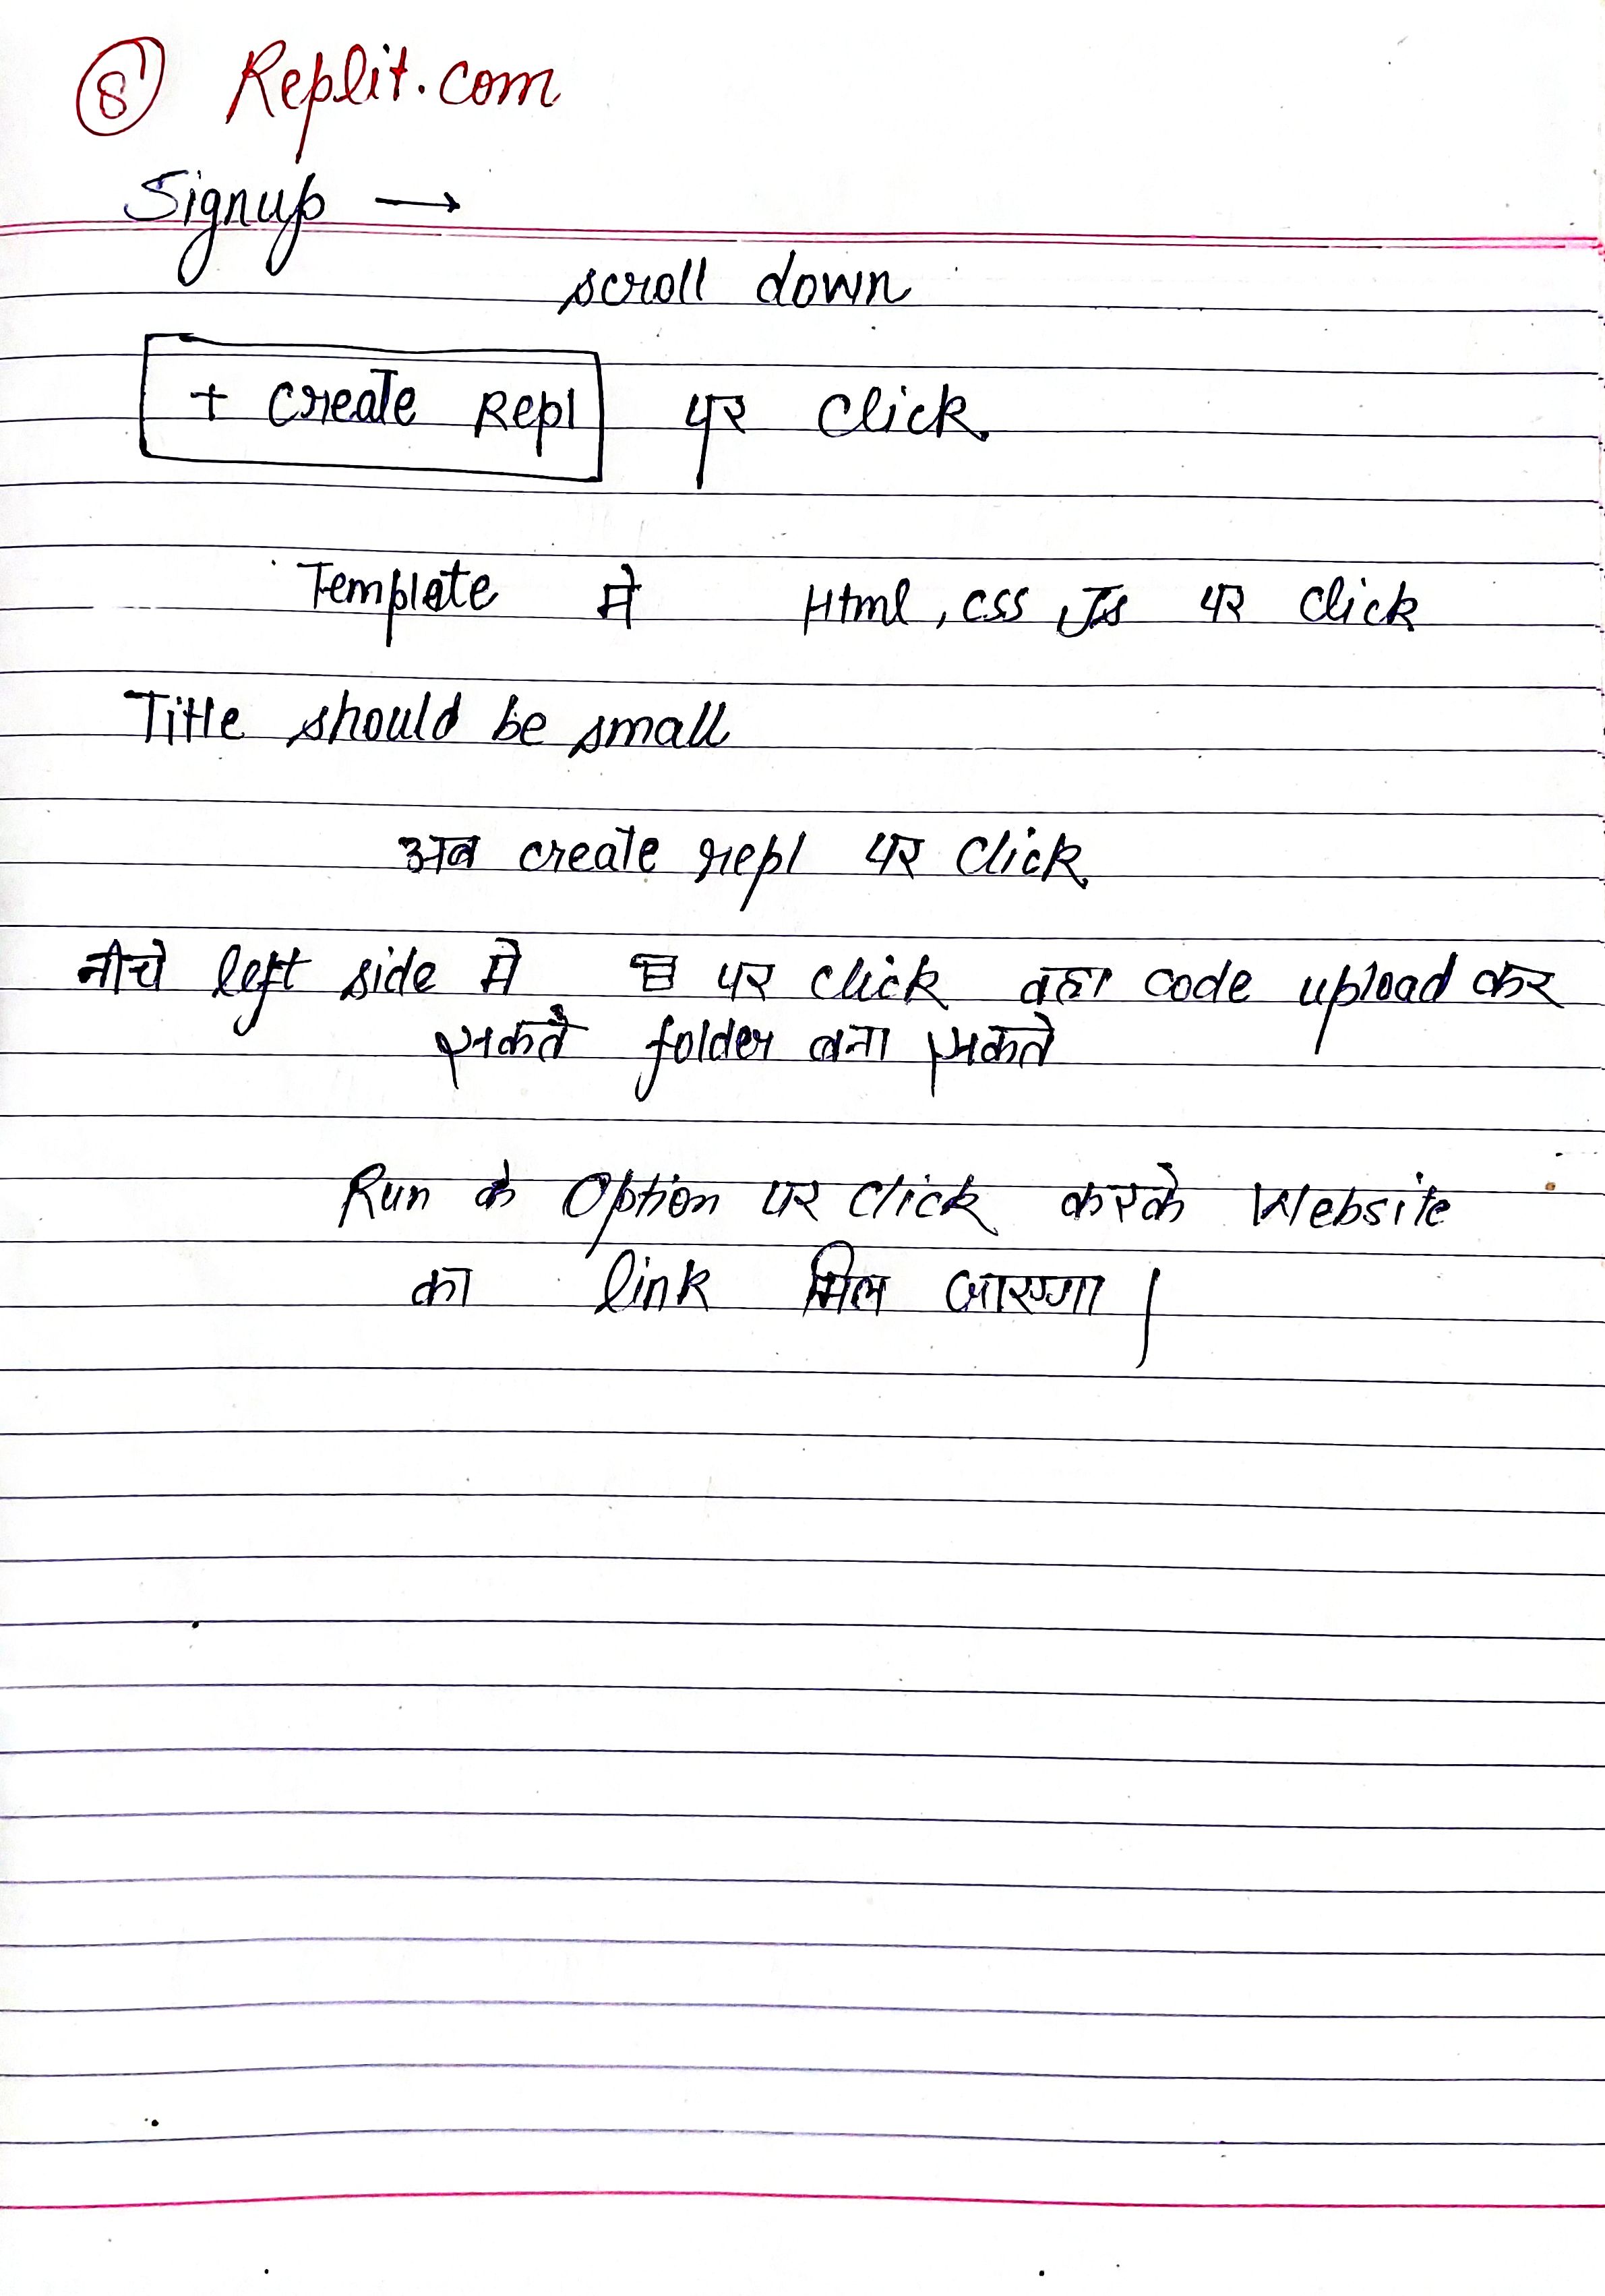 8 Replit.com
Signup →
scroll down
+ Create Repl पर Click
Template मे Html, css Js पर click
Title should be small
अब create repl पर Click
नीचे left side मे पर click वहा code upload कर
सकते folder बना सकते
Run के Option पर click करके Website
का link मिल जाएगा |